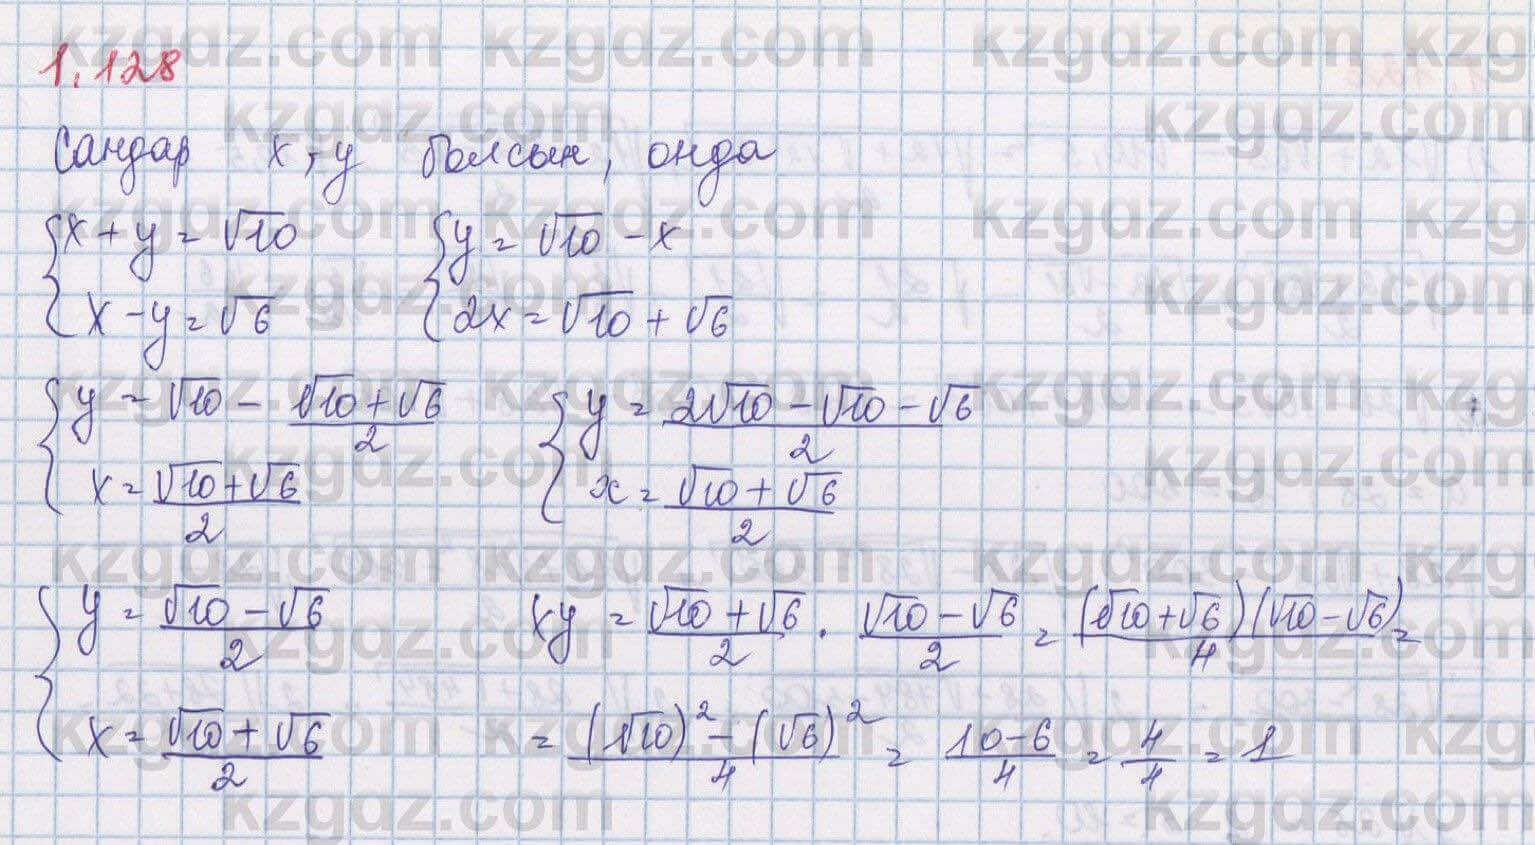 1.128
Сандар x, y болсын, онда
{x + y = √10   {y = √10 - x
{x - y = √6   {2x = √10 + √6
{y = √10 - (√10 + √6)/2   {y = (2√10 - √10 - √6)/2
{x = (√10 + √6)/2   {x = (√10 + √6)/2
{y = (√10 - √6)/2   xy = (√10 + √6)/2 · (√10 - √6)/2 = (√10 + √6)(√10 - √6)/4 =
{x = (√10 + √6)/2   = ((√10)² - (√6)²)/4 = (10 - 6)/4 = 4/4 = 1
kzgdz.com